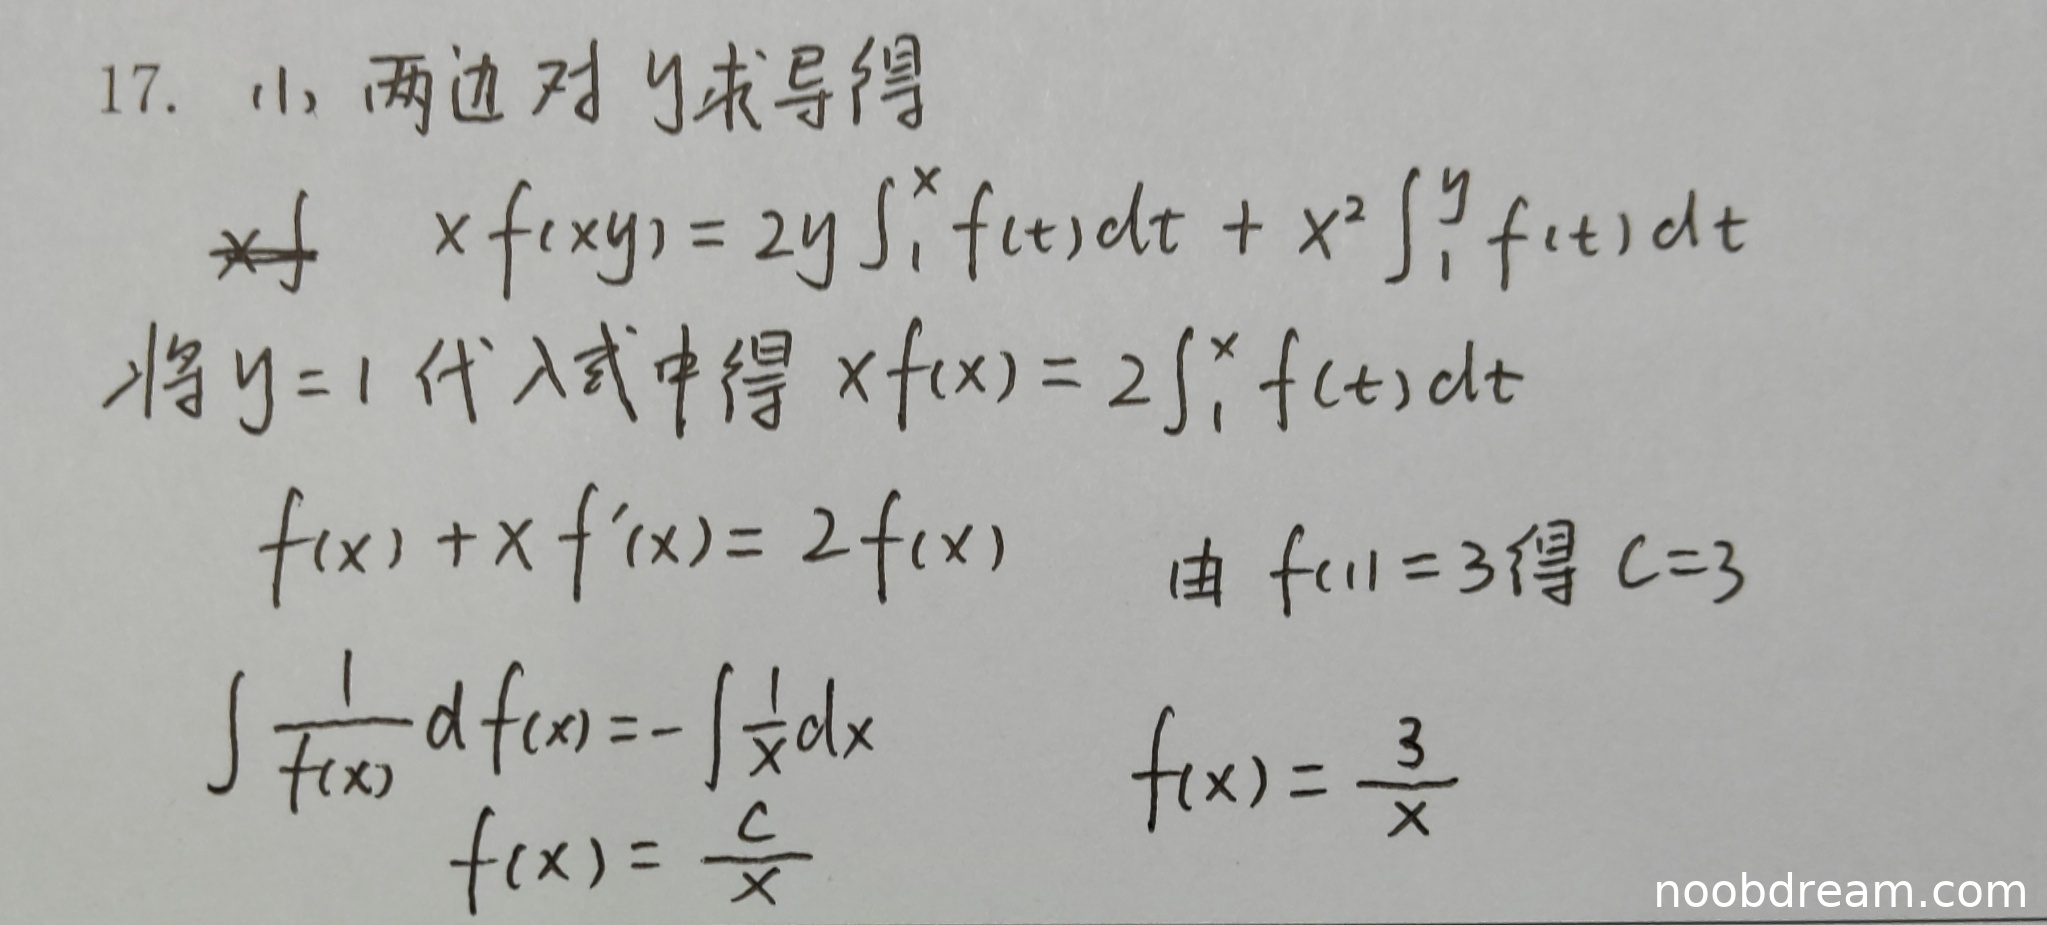 17. (1) 两边对 y 求导得
xf x f(xy) = 2y ∫₁ˣ f(t)dt + x² ∫₁ʸ f(t)dt
将 y=1 代入式中得 x f(x) = 2∫₁ˣ f(t)dt
f(x) + x f'(x) = 2f(x)
由 f(1) = 3 得 C=3
∫ 1/f(x) d f(x) = -∫ 1/x dx
f(x) = C/x
f(x) = 3/x
noobdream.com